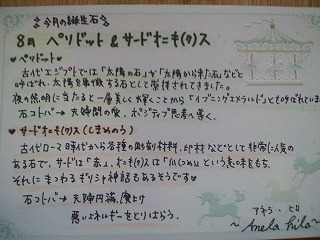 今月の誕生石
8月 ペリドット & サードオニキ(ク)ス
♥ペリドット♥
古代エジプトでは「太陽の石」が「太陽から来た石」などと
呼ばれ、太陽を象徴する石として崇拝されてました。
夜の照明に当たると一層美しく輝くことから「イブニングエメラルド」とも呼ばれていま
石コトバ→夫婦間の愛、ポジティブ思考へ導く。
♥サードオニキ(ク)ス(しまめのう)
古代ローマ時代から各種の彫刻材料、印材などとして非常に人気の
ある石で、サードは「赤」、オニキ(ク)スは「爪(つめ)」という意味をもち、
それにまつわるギリシャ神話もあるそうです
石コトバ→夫婦円満、魔よけ
悪いエネルギーをとりはらう。
アネラ・ヒロ
~Anela hilo~